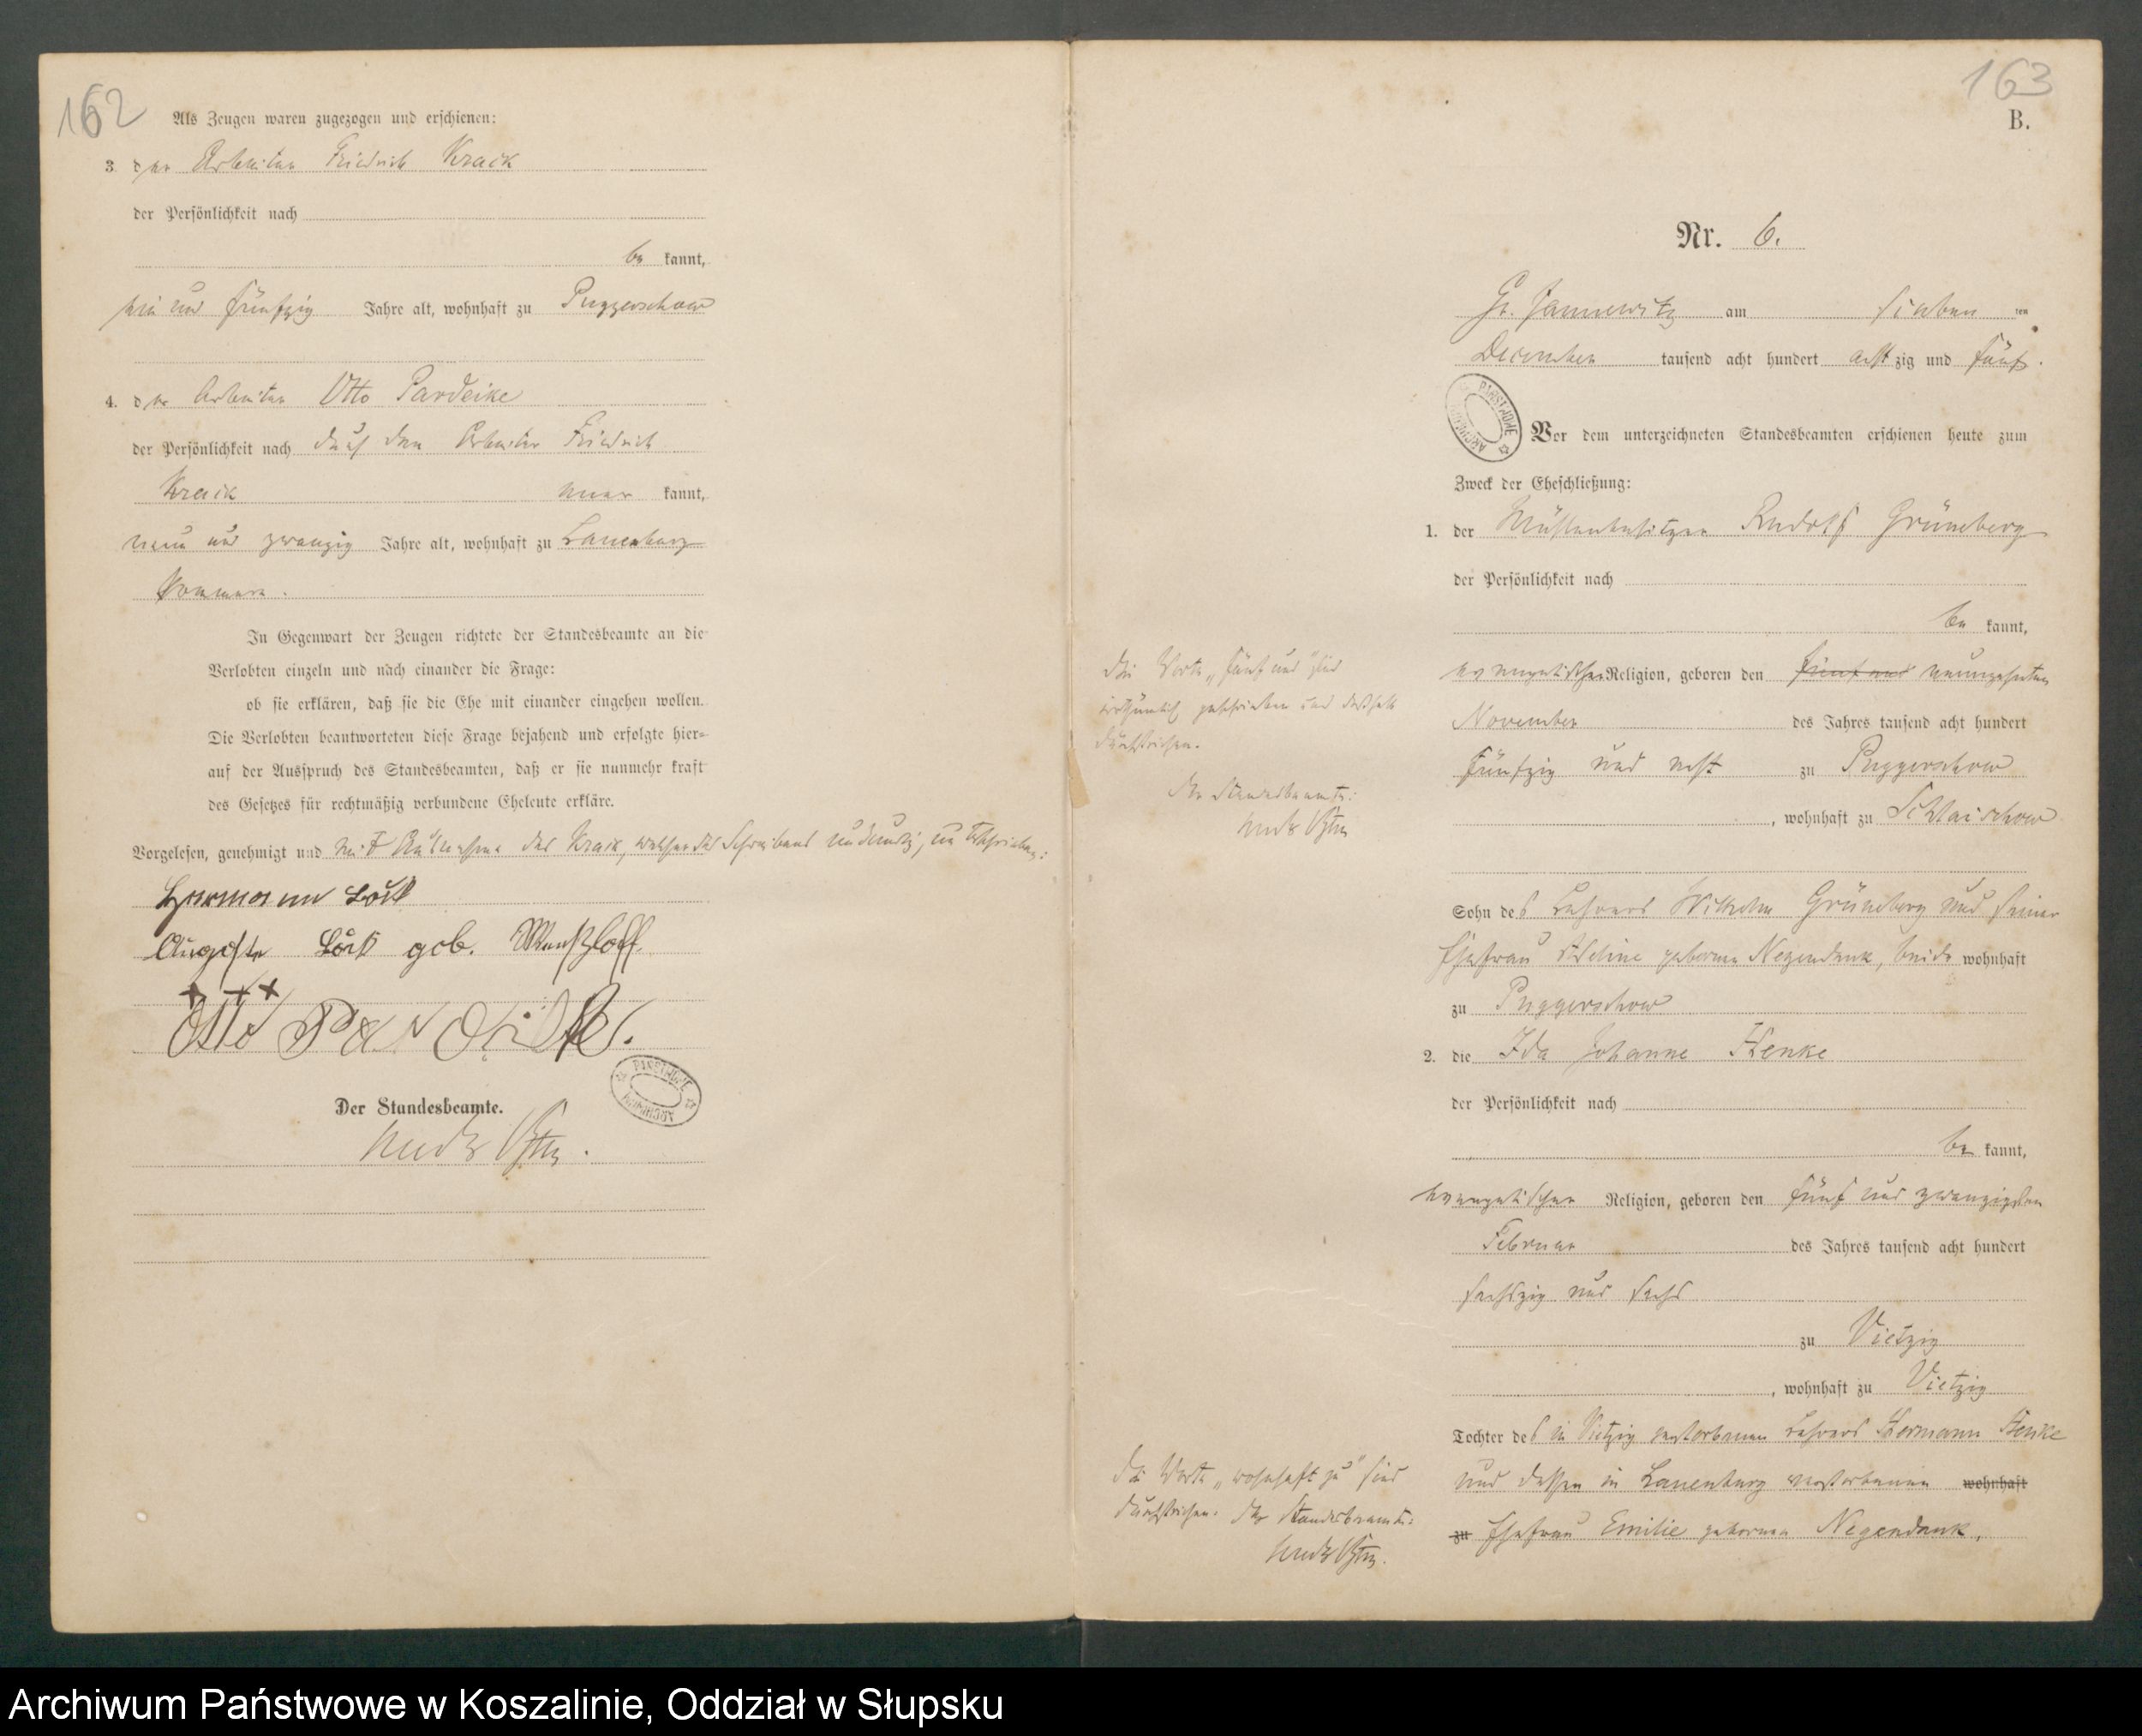 162
Als Zeugen waren zugezogen und erschienen:
3. der Arbeiter Friedrich Kraik
der Persönlichkeit nach
be kannt,
und fünfzig Jahre alt, wohnhaft zu Puggerschow
4. der Arbeiter Otto Pardeike
der Persönlichkeit nach durch den Arbeiter Friedrich
Kraik aner kannt,
neun und zwanzig Jahre alt, wohnhaft zu Lauenburg
Pommern.
In Gegenwart der Zeugen richtete der Standesbeamte an die
Verlobten einzeln und nach einander die Frage:
ob sie erklären, daß sie die Ehe mit einander eingehen wollen.
Die Verlobten beantworteten diese Frage bejahend und erfolgte hier-
auf der Ausspruch des Standesbeamten, daß er sie nunmehr kraft
des Gesetzes für rechtmäßig verbundene Eheleute erkläre.
Vorgelesen, genehmigt und mit Ausnahme des Kraik, welcher des Schreibens unkundig, unterschrieben:
Hermann
Auguste geb.
+++
Otto Pardeike.
Der Standesbeamte.
PAŃSTWOWE
ARCHIWUM
163
B.
Nr. 6.
Gr. Jannewitz am sieben ten
December tausend acht hundert acht zig und fünf.
PAŃSTWOWE
ARCHIWUM
Vor dem unterzeichneten Standesbeamten erschienen heute zum
Zweck der Eheschließung:
1. der Mühlenbesitzer Rudolf Grüneberg
der Persönlichkeit nach
be kannt,
evangelischer Religion, geboren den fünf und neunzehnten
November des Jahres tausend acht hundert
fünfzig und acht zu Puggerschow
, wohnhaft zu Schlaischow
Sohn des Lehrers Wilhelm Grüneberg und seiner
Ehefrau geborene Negendank, beide wohnhaft
zu Puggerschow
2. die Ida Johanne Henke
der Persönlichkeit nach
be kannt,
evangelischer Religion, geboren den fünf und zwanzigsten
Februar des Jahres tausend acht hundert
sechszig und sechs
zu Vietzig
, wohnhaft zu Vietzig
Tochter des in Vietzig verstorbenen Lehrers Hermann Henke
und dessen in Lauenburg verstorbenen wohnhaft
zu Ehefrau Emilie geborene Negendank,
Die Worte „fünf und" sind
irrthümlich geschrieben und deshalb
durchstrichen.
Der Standesbeamte:
Die Worte „wohnhaft zu" sind
durchstrichen. Der Standesbeamte:
Archiwum Państwowe w Koszalinie, Oddział w Słupsku